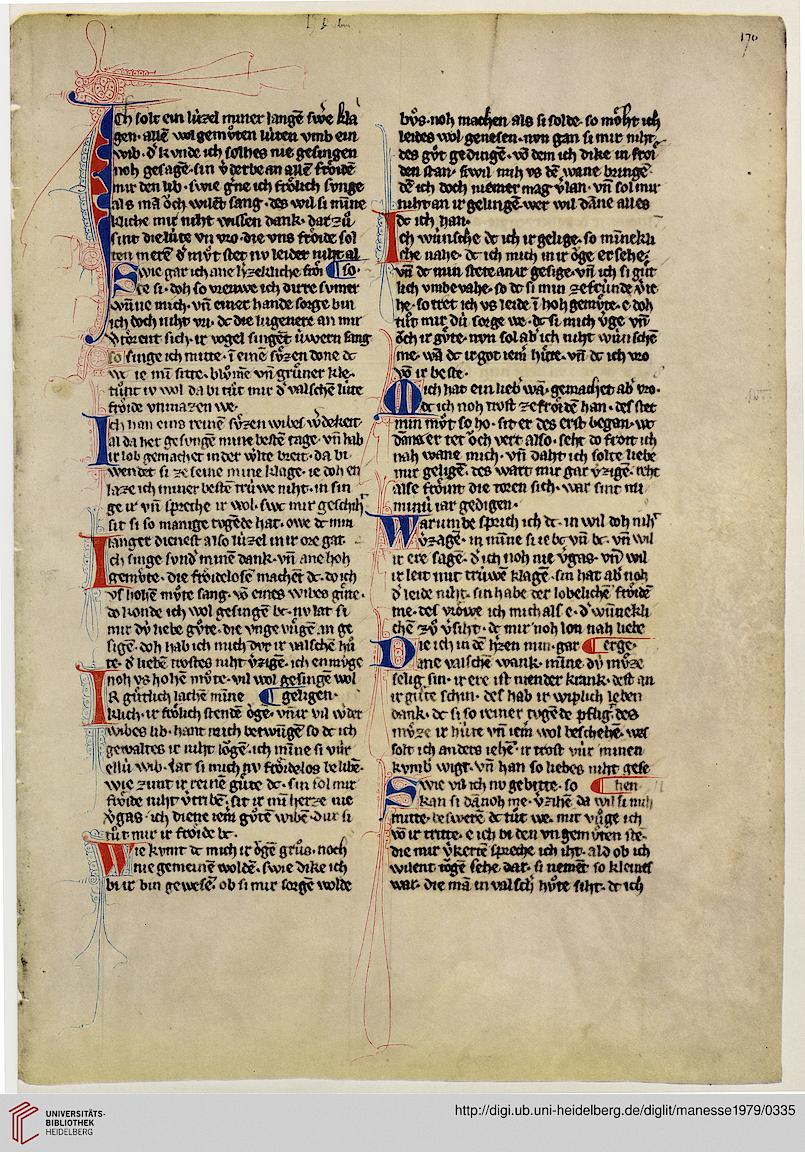 170
Ich solt ein lúzel miner langē swe kla
gen. allē wol gemůten lúten vmb ein
wib. d' kvnde ich solhes nie gesingen
noh gesagē. sin v'derbe an allē frőide
mir den lib. swie g'ne ich frőlich svnge
als mā ǒch wilēt sang. des wil si mine
kliche mir niht wissen dank. dar zů
sint die lúte vn vro. die vns frőide sol
ten merē d' můt stet nv leider niht al
Swie gar ich ane h'zekliche frői so.
te si. doh so vrewe ich dirre svmer
wūne mich. vn̄ einer hande sorge bin
ich doch niht vri. dc die lugenere an mir
d' tőrent sich. ir vogel singēt úwern sang
so singe ich mitte. ī einē sv́zen done dc
we ie mī sitte. blv̊mē vn̄ grűner kle.
tůnt iv wol da bi tůt mir d' valschē lúte
frőide vnmazen we.
Ich han eins reinē sv́zen wibes w'dekeit.
al da her gesvngē mine bestē tage. vn̄ hab
ir lob gemachet in der w'lte breit. da bi
wendet si ze seine mine klage. ie doh en
laze ich miner bestē trúwe niht. in sin
ge ir vn̄ spreche ir wol. swc mir geschih'
sit si so manige tvgēde hat. owe dc min
langer dienest also lúzel in ir ore gat.
Ich singe svnd' minē dank. vn̄ ane hoh
gemv́te. die frőidelosē machēt dc. do ich
vf hohē můte sang. vō eines wibes gv́te.
do konde ich wol gesingē bc. nv lat si
mir dv́ liebe gv́te. die vnge vűgē an ge
sigē. doh hab ich mich dvr ir valschē hů
te. d' liebē trostes niht v'zigē. ich en műge
noh vf hohē můte. vil wol gesingē wol
Ir gütlich lachē mīne geligen.
klich. ir frőlich stendē ǒge. vn̄ir vil w'der
wibes lib. hant mich betwūgē so dc ich
gewaltes ir niht lőgē. ich mīne si vúr
ellú wib. lat si mich nv frőidelos belibē.
wie zimt ir reinē gűte dc. sin sol mir
frőide niht v'tribē. sit ir mī herze nie
v'gas. ich diene iem gůtē wibē. dur si
tůt mir ir frőide bc.
Wie kvmt dc mich ir ǒgē grůs. noch
nie gemeinē woldē. swie dike ich
bi ir bin gewesē. ob si mir sorgē wolde
bůs. noh machen als si solde. so mőht ich
leides wol genesen. nvn gan si mir niht
des gůt gedingē. vō dem ich dike in frői
den stan. si wil mih vs dē wane bringē.
dē ich doch niemer mag v'lan. vn̄ sol mir
niht an ir gelingē. wer wil dāne alles
dc ich han.
Ich wünsche dc ich ir gelige. so mīnekli
che nahe. dc ich mich in ir ǒge ersehe.
vn̄ dc min stete an ir gesige. vn̄ ich si gűt
lich vmbevahe. so dc si min ze frúnde v'ie
he. so tret ich vs leide ī hoh gemv́te. e doh
tůt mir dú sorge we. dc si mich v'ge vn̄
ǒch ir gv́te. nvn sol ab' ich niht wűnschē
me. wā dc ir got iem' hűte. vn̄ dc ich vro
vō ir beste.
Mich hat ein lieb' wā. gemachet ab' vro.
dc ich noh trost ze frőide han. des stet
min můt so ho. sit er des erst began. we
dāne er tet ǒch vert also. seht do frőt ich
nah wane mich. vn̄ daht ich solte liebe
mir geligē. des wart mir gar v'zigē. reht
alse frőint die toren sich. war sint mi
minú iar gedigen.
Warumbe sprich ich dc. in wil doh nih'
v'zagē. in mīne si ie bc vn̄ bc. vn̄ wil
ir ere sagē. d' ich noh nie v'gas. vn̄ wil
ir leit mit trúwē klagē. sin hat ab' noh
d' leide niht. sin habe der lobelichē frőidē
me. des vrőwe ich mich als e. d' wūnekli
chē zv̊ v'siht. dc mir noh lon nah liebe
Die ich in dē h'zen min. gar erge.
ane valschē wank. mīne dv́ műze
selig sin. ir ere ist niender krank. dest an
ir gűte schin. des hab ir wiplich leben
dank. dc si so reiner tvgēde pflig'. des
mőze ir hűte vn̄ iem' wol beschehē. wes
solt ich anders iehē. ir trost vúr minen
kvmb' wigt. vn̄ han so liebes niht gese
Swie vil ich nv gebitte. so hen
kan si dānoh me. v'zihē da wil si mih
mitte. beswerē dc tůt we. mir vűge ich
vō ir tritte. e ich bi den vngemv́ten ste.
die mir v'kertē spreche ich iht. ald ob ich
wilent tǒgē sehe. dar. si nemēt so kleines
war. die mā in valsch' hůte siht. dc ich
UNIVERSITÄTS-
BIBLIOTHEK
HEIDELBERG
http://digi.ub.uni-heidelberg.de/diglit/manesse1979/0335